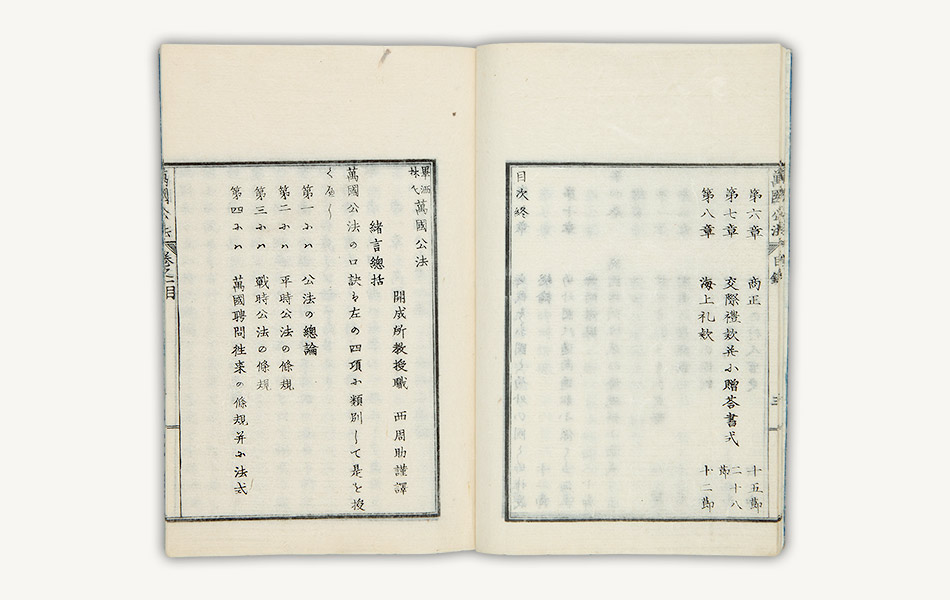 第六章 商正 十五節
第七章 交際禮欵并小贈答書式 二十八節
第八章 海上礼欵 十二節
目次終
畢洒林氏 萬國公法
開成所教授職 西周助謹譯
緒言總括
萬國公法の口訣も左の四項小類別して是を授
く
第一小ハ 公法の總論
第二小ハ 平時公法の條規
第三小ハ 戰時公法の條規
第四小ハ 萬國聘問往来の條規并小法式